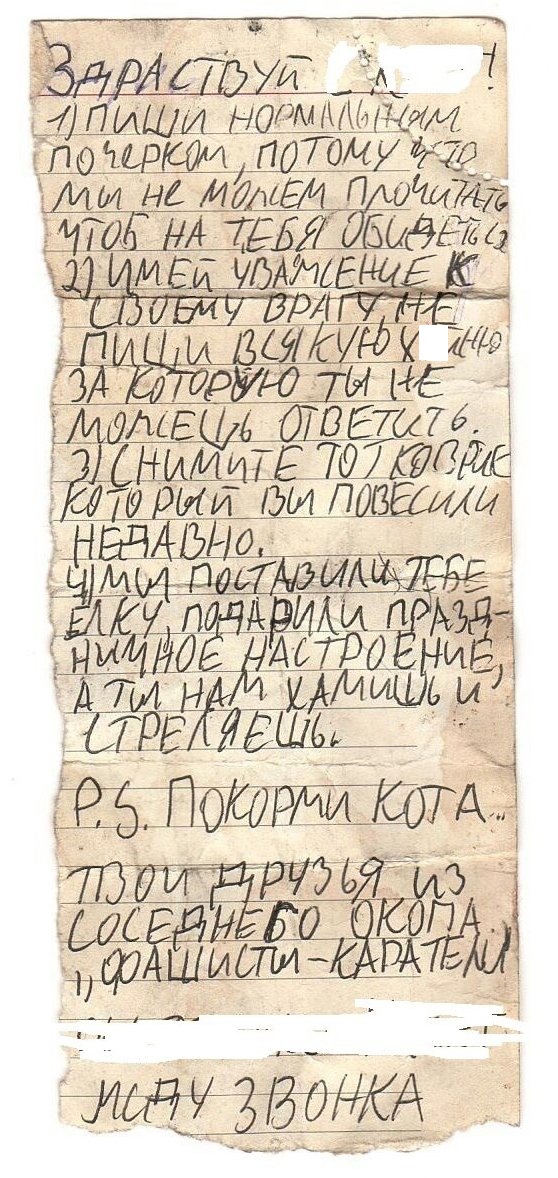 Здраствуй !
1) пиши нормальным
почерком, потому что
мы не можем прочитать
чтоб на тебя обидеться
2) имей уважение к
своему врагу, не
пиши всякую х йню
за которую ты не
можешь ответить.
3) Снимите тот коврик
который вы повесили
недавно.
4) Мы поставили тебе
ёлку, подарили празд-
ничное настроение,
а ты нам хамишь и
стреляешь.
P.S. Покорми кота..
Твои друзья из
соседнего окопа
„фашисты-каратели
жду звонка